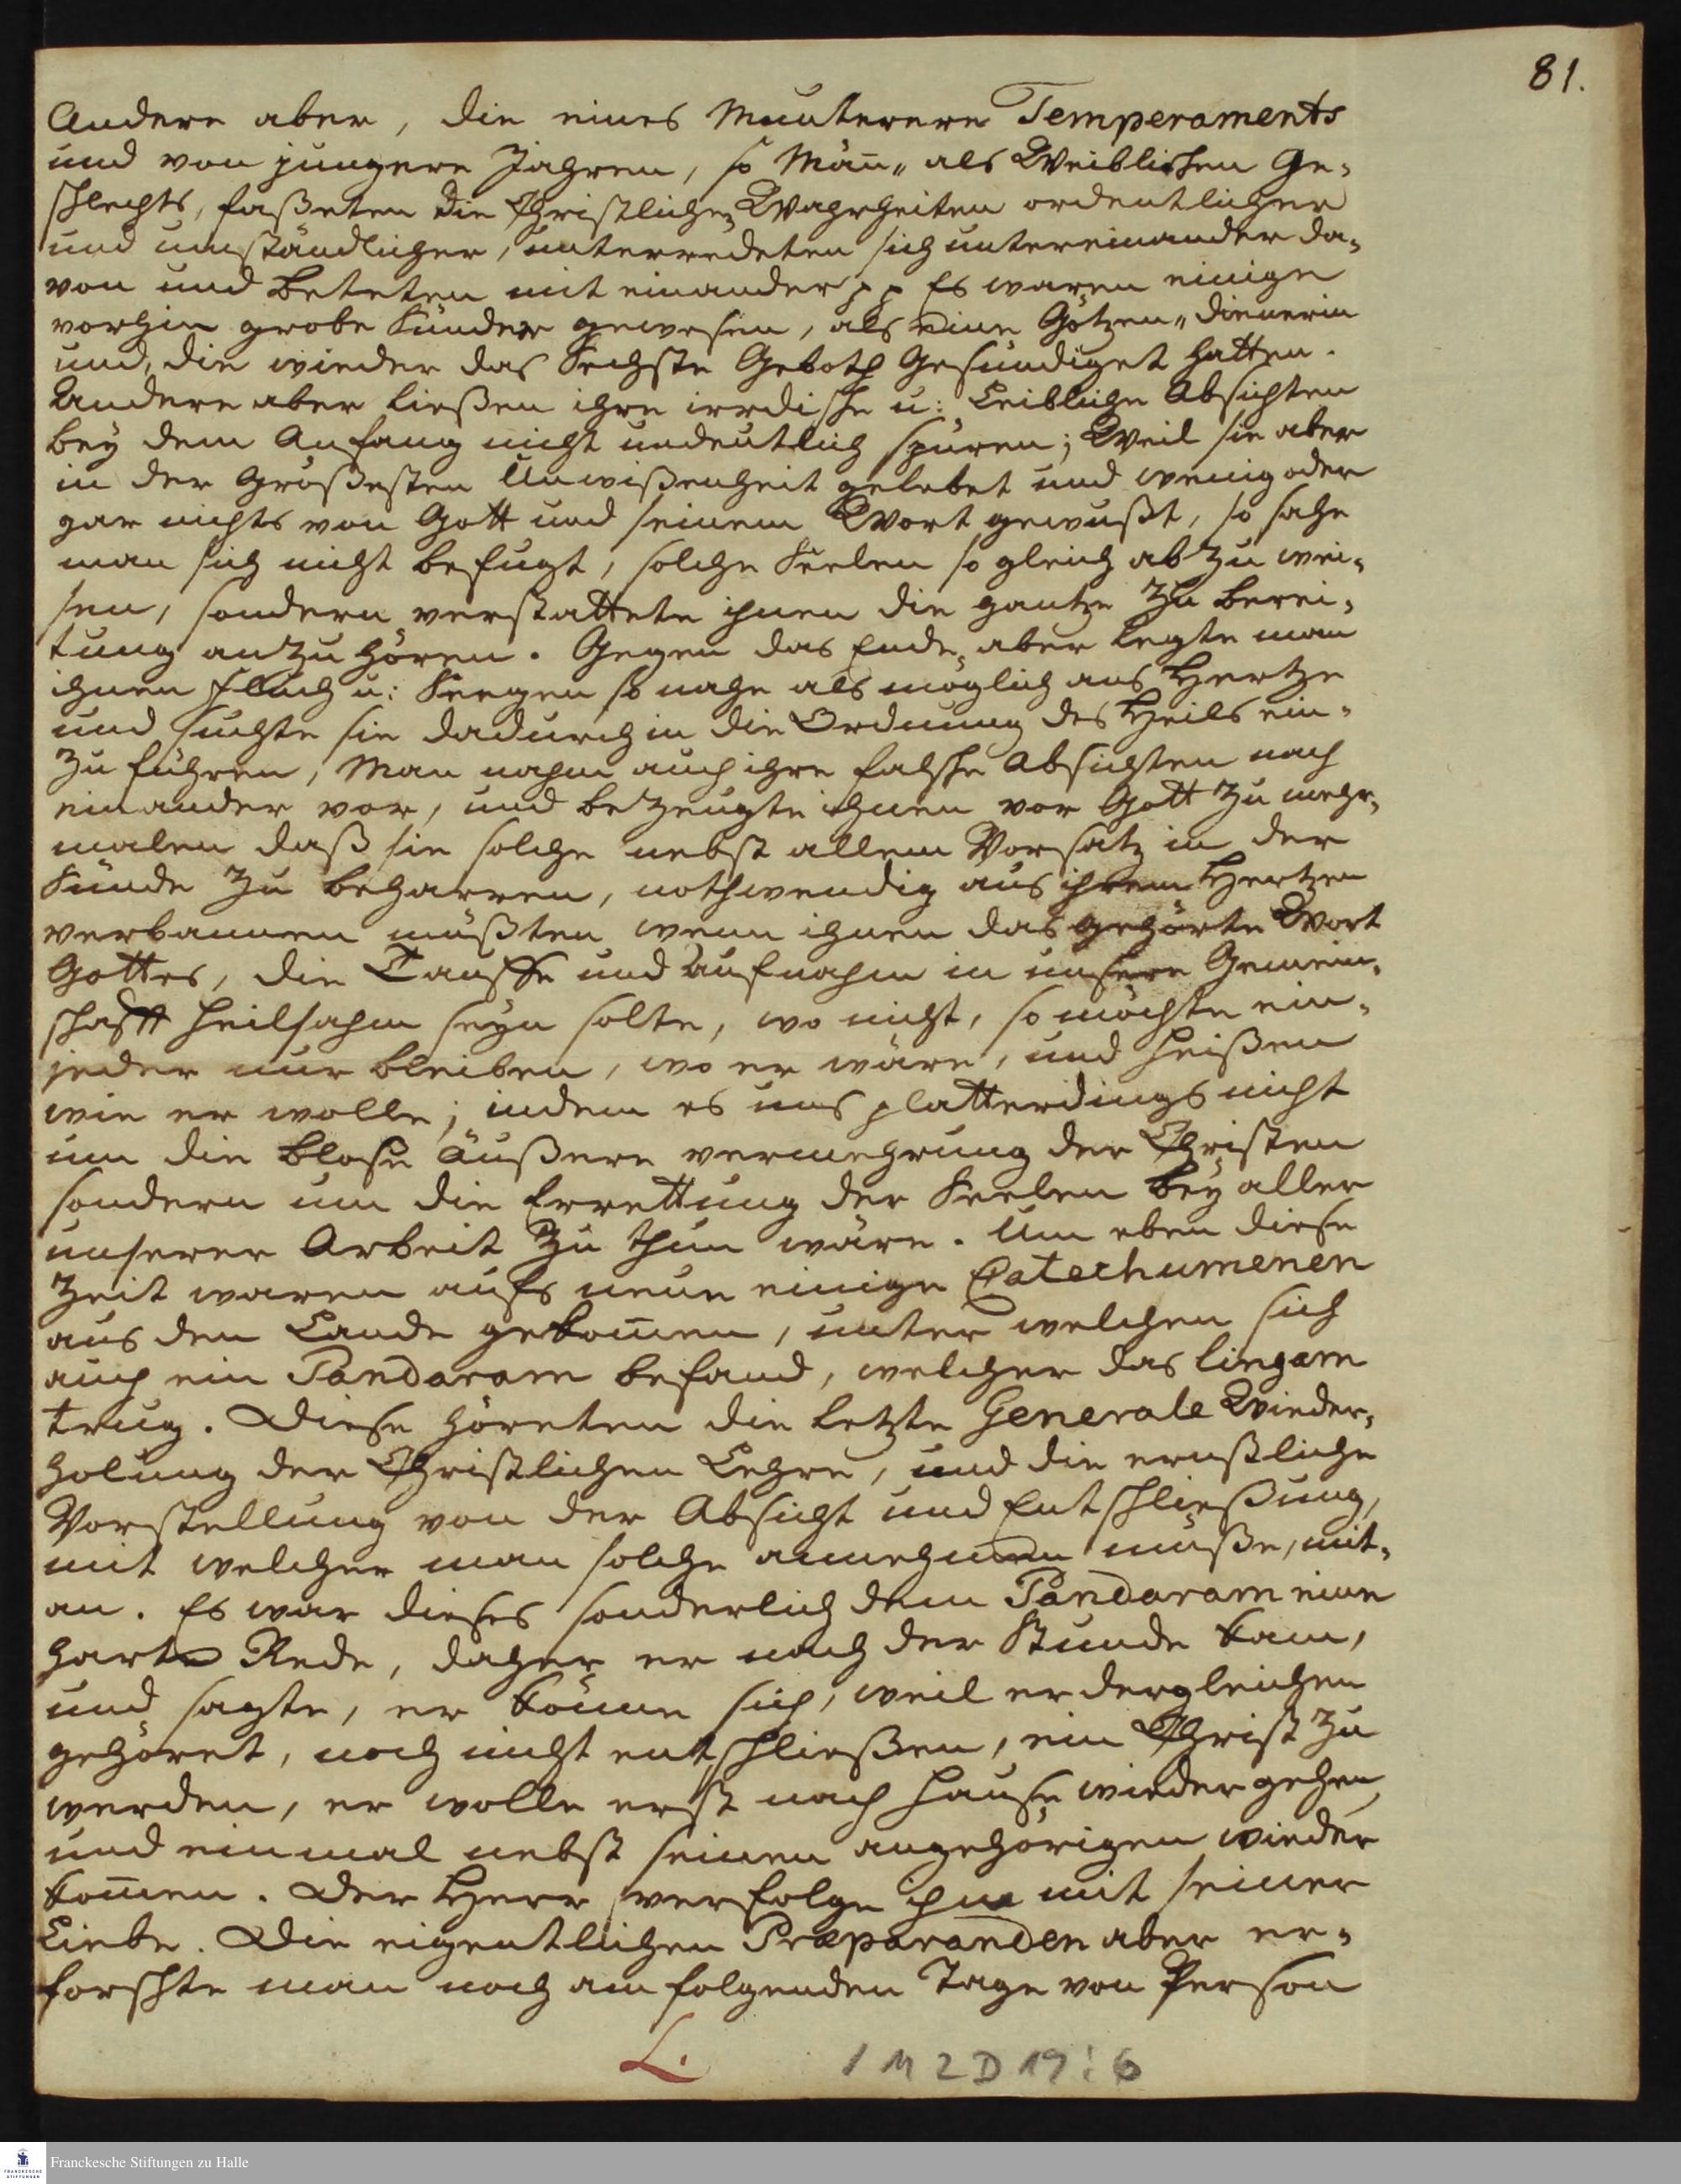 81.
Andere aber, die eines Munterern Temperaments
und von jungern Jahren, so Mañ„ als Weiblichen Ge-
schlechts, faßeten die Christlichen Wahrheiten ordentlicher
und umständlicher, unterredeten sich untereinander da-
von und beteten mit einander pp Es waren einige
vorhin grobe Sünder gewesen, als eine Götzen„dienerin
und, die wieder das Sechste Geboth Gesündiget hatten.
Andere aber ließen ihre irrdische u: Leibliche Absichten
bey dem Anfang nicht undeutlich spüren; Weil sie aber
in der Größesten Unwißenheit gelebet und wenig oder
gar nichts von Gott und seinem Wort gewußt, so sahe
man sich nicht befugt, solche Seelen so gleich ab zu wei-
sen, sondern verstattete ihnen die gantze Zu berei-
tung anzu hören. Gegen das Ende aber legte man
ihnen Fluch u: Seegen so nahe als möglich ans Hertze
und suchte sie dadurch in die Ordnung des Heils ein-
zu führen, Man nahm auch ihre falsche Absichten nach
einander vor, und be zeugte ihnen vor Gott zu mehr-
malen daß sie solche nebst allem Vorsatz in der
Sünde zu beharren, nothwendig aus ihrem Hertzen
verbannen müßten wenn ihnen das gehörte Wort
Gottes, die Tauffe und Aufnahm in unsere Gemein-
schafft heilsahm seyn solte, wo nicht, so möchte ein-
jeder nur bleiben, wo er wäre, und heißen
wie er wolle; indem es uns platterdings nicht
um die blose äußere vermehrung der Christen
sondern um die Errettung der Seelen bey aller
unserer Arbeit zu thun wäre. Um eben diese
Zeit waren aufs neue einige Catechumenen
aus den Lande gekom̄en, unter welchen sich
auch ein Pandaram befand, welcher das lingam
trug. Diese höreten die letzte Generale Wieder-
holung der Christlichen Lehre, und die ernstliche
Vorstellung von der Absicht und Entschließung,
mit welcher man solche annehmen müße, mit-
an. Es war dieses sonderlich dem Pandaram eine
harte Rede, daher er nach der Stunde kam,
und sagte, er könne sich, weil er dergleichen
gehöret, noch nicht entschließen, ein Christ zu
werden, er wolle erst nach Hause wieder gehen,
und einmal nebst seinen angehörigen wieder
kom̄en. Der Herr verfolge ihn mit seiner
Liebe. Die eigentlichen Præparanden aber er-
forschte man noch am folgenden Tage von Person
L.
1 M 2 D 19 : 6
FRANCKESCHE STIFTUNGEN
Franckesche Stiftungen zu Halle